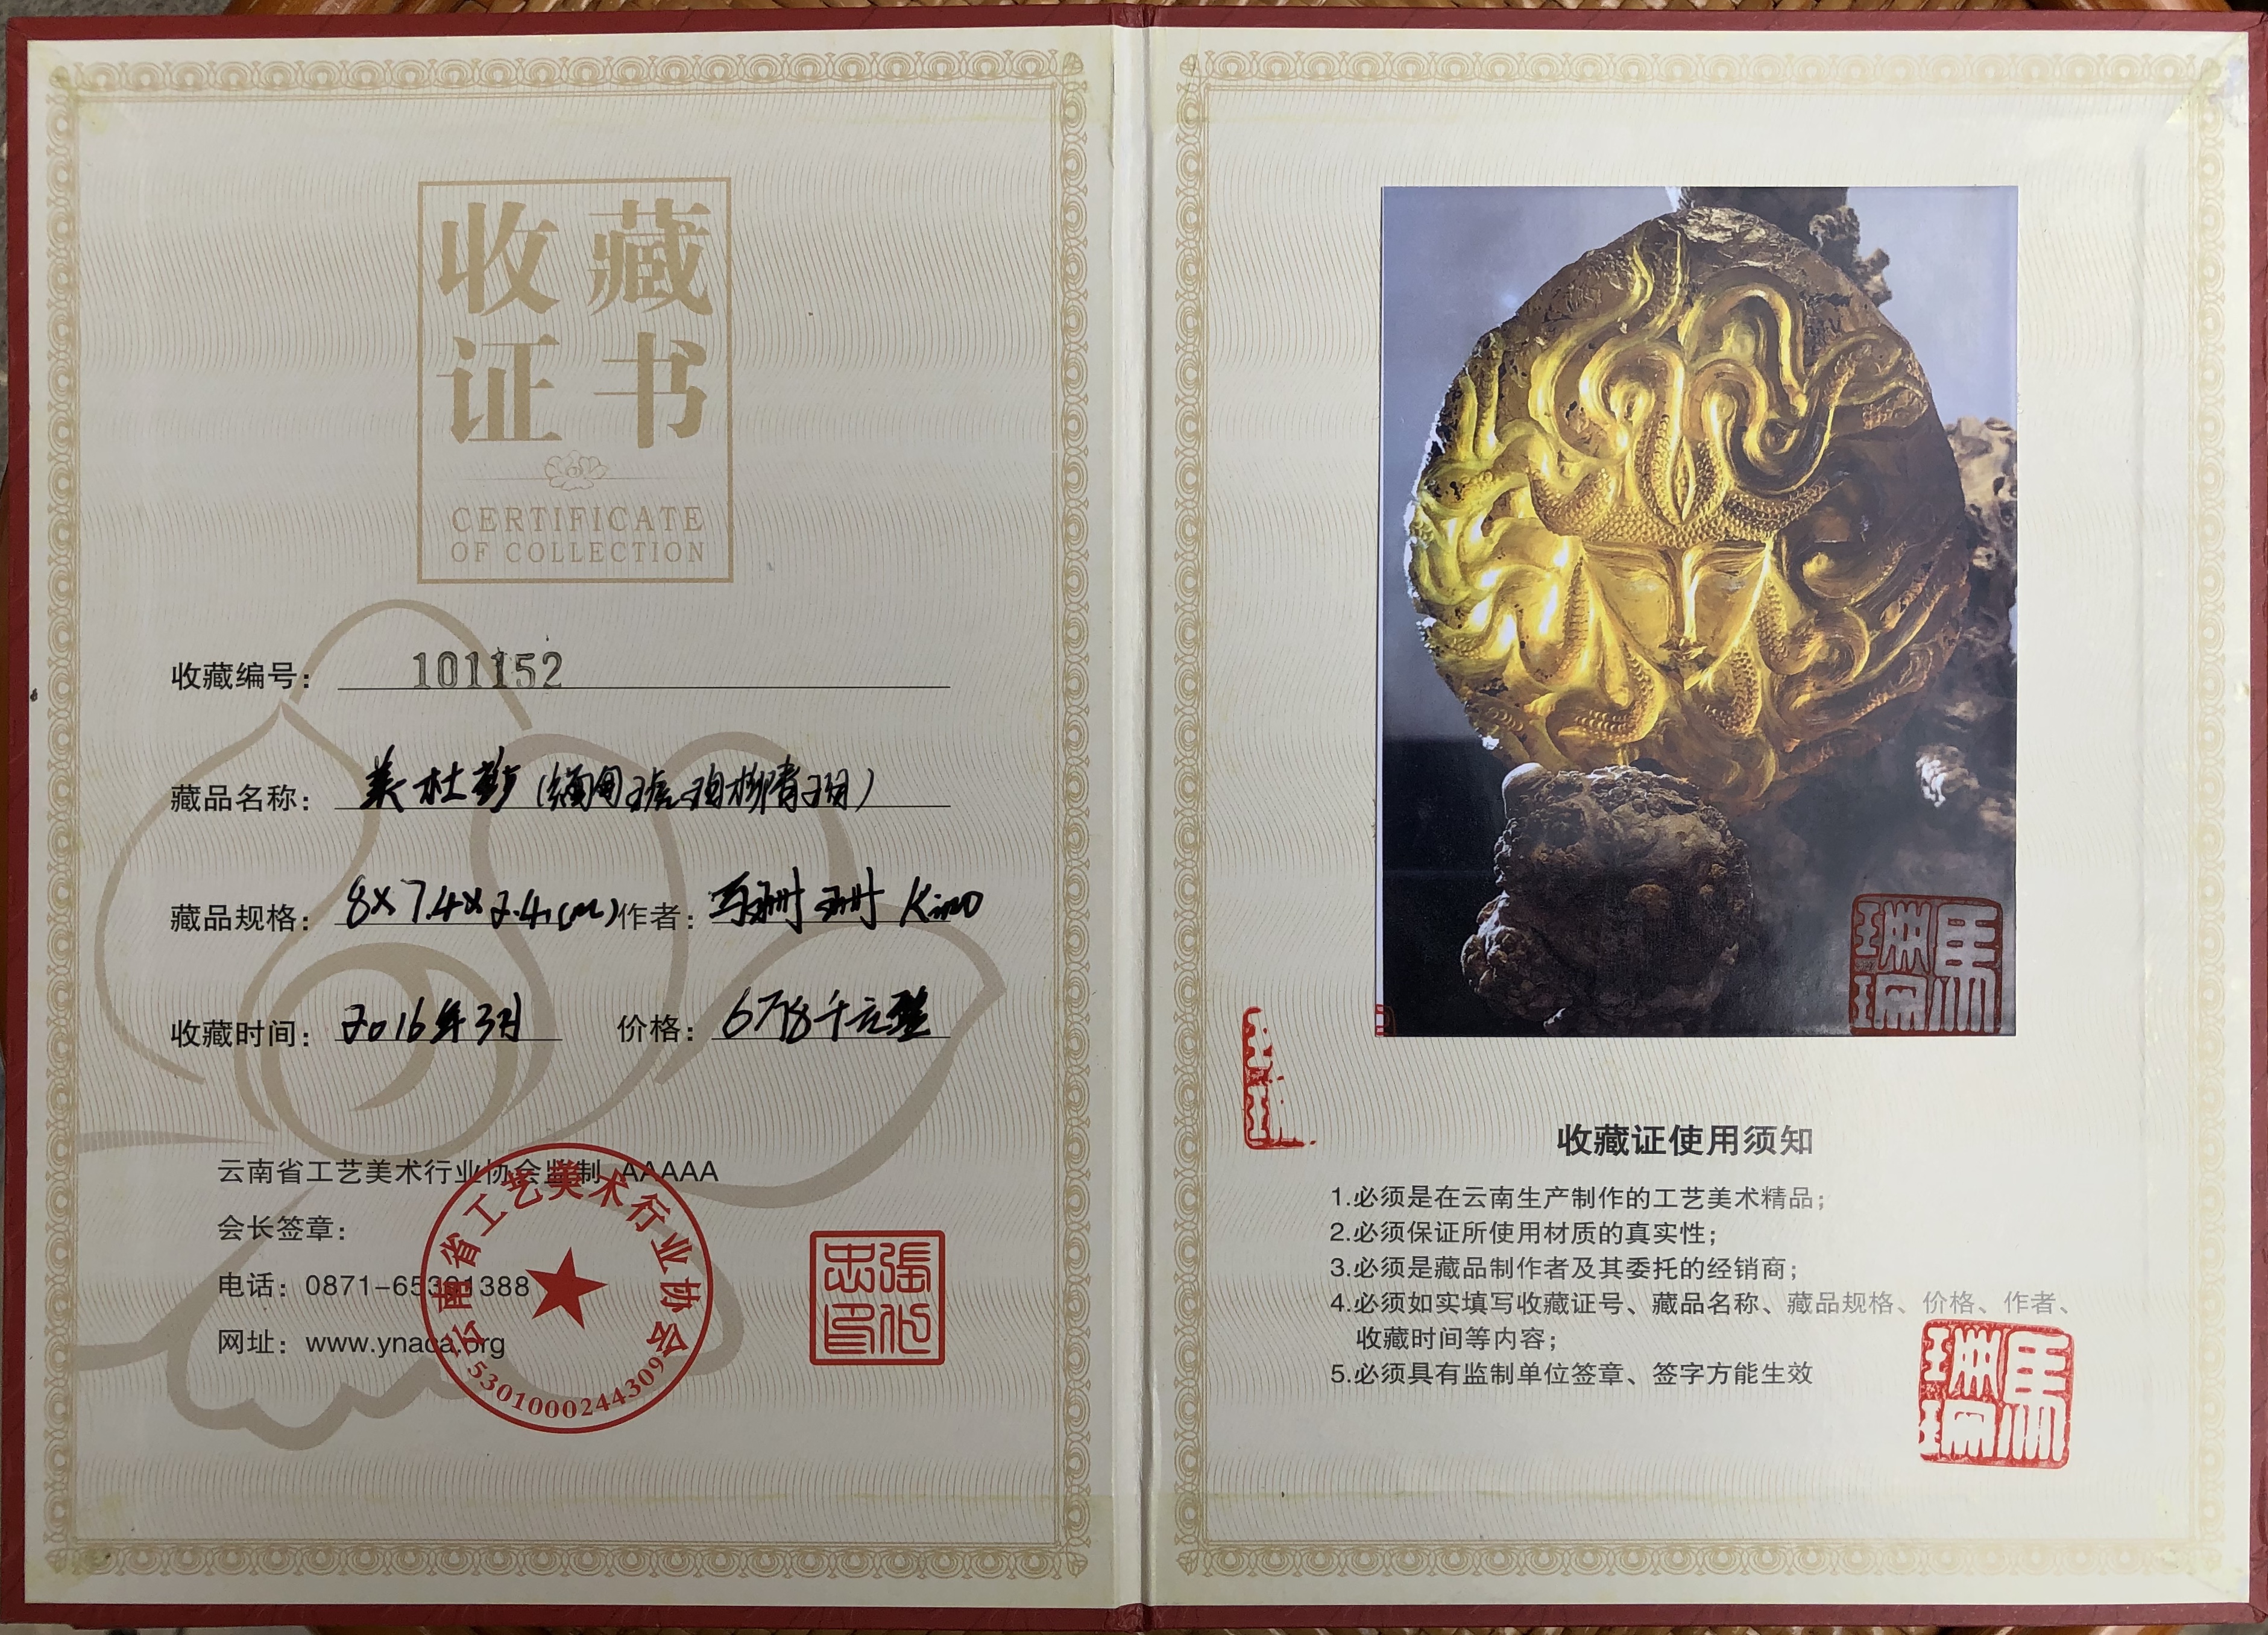 收藏
证书
CERTIFICATE
OF COLLECTION
收藏编号： 101152
藏品名称： 美杜莎（缅甸琥珀柳青珀）
藏品规格： 8×7.4×2.4(cm) 作者： 马珊珊 Kino
收藏时间： 2016年3月 价格： 6万8千元整
云南省工艺美术行业协会监制 AAAAA
会长签章：
电话：0871-65391388
网址：www.ynaca.org
云南省工艺美术行业协会
5301000244309
收藏证使用须知
1.必须是在云南生产制作的工艺美术精品；
2.必须保证所使用材质的真实性；
3.必须是藏品制作者及其委托的经销商；
4.必须如实填写收藏证号、藏品名称、藏品规格、价格、作者、
收藏时间等内容；
5.必须具有监制单位签章、签字方能生效